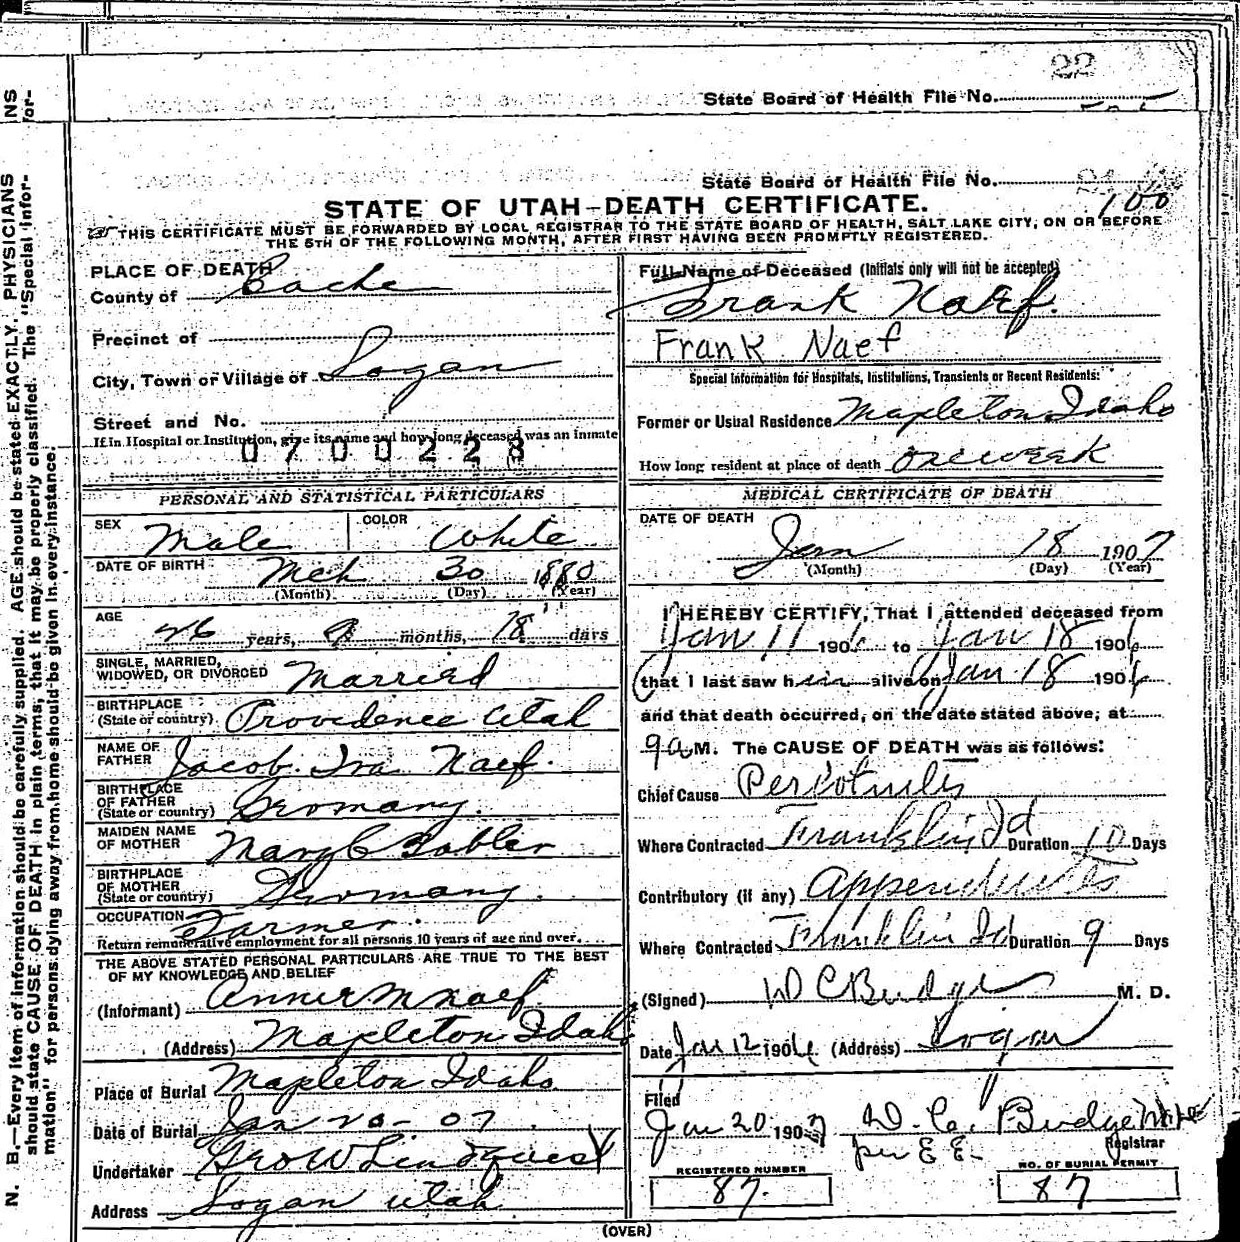 22
State Board of Health File No.
State Board of Health File No. 100
STATE OF UTAH—DEATH CERTIFICATE.
THIS CERTIFICATE MUST BE FORWARDED BY LOCAL REGISTRAR TO THE STATE BOARD OF HEALTH, SALT LAKE CITY, ON OR BEFORE
THE 5TH OF THE FOLLOWING MONTH, AFTER FIRST HAVING BEEN PROMPTLY REGISTERED.
PLACE OF DEATH
County of Cache
Precinct of
City, Town or Village of Logan
Street and No.
If in Hospital or Institution, give its name and how long deceased was an inmate
0700223
PERSONAL AND STATISTICAL PARTICULARS
SEX Male COLOR White
DATE OF BIRTH Mch 30 1880
(Month) (Day) (Year)
AGE 26 years, 9 months, 18 days
SINGLE, MARRIED,
WIDOWED, OR DIVORCED Married
BIRTHPLACE
(State or country) Providence Utah
NAME OF
FATHER Jacob Ira Naef.
BIRTHPLACE
OF FATHER
(State or country) Germany.
MAIDEN NAME
OF MOTHER Mary C Gobler
BIRTHPLACE
OF MOTHER
(State or country) Germany.
OCCUPATION Farmer.
Return remunerative employment for all persons 10 years of age and over.
THE ABOVE STATED PERSONAL PARTICULARS ARE TRUE TO THE BEST
OF MY KNOWLEDGE AND BELIEF
(Informant) Annie M Naef
(Address) Mapleton Idaho
Place of Burial Mapleton Idaho
Date of Burial Jan 20 - 07.
Undertaker Geo W Lindquist
Address Logan Utah
Full Name of Deceased (Initials only will not be accepted)
Frank Naef.
Frank Naef
Special Information for Hospitals, Institutions, Transients or Recent Residents:
Former or Usual Residence Mapleton Idaho
How long resident at place of death one week
MEDICAL CERTIFICATE OF DEATH
DATE OF DEATH
Jan 18 1907
(Month) (Day) (Year)
I HEREBY CERTIFY, That I attended deceased from
Jan 11 190 to Jan 18 1906
that I last saw him alive on Jan 18 1906
and that death occurred, on the date stated above, at
9 a M. The CAUSE OF DEATH was as follows:
Chief Cause Peritonitis
Where Contracted Franklin Id Duration 10 Days
Contributory (if any) Appendicitis
Where Contracted Franklin Id Duration 9 Days
(Signed) D C Budge M. D.
Date Jan 12 1906 (Address) Logan
Filed
Jan 20 1907 D. C. Budge
per E E. Registrar
REGISTERED NUMBER
87.
NO. OF BURIAL PERMIT
87
(OVER)
N. B.—Every item of information should be carefully supplied. AGE should be stated EXACTLY. PHYSICIANS
should state CAUSE OF DEATH in plain terms, that it may be properly classified. The "Special Infor-
mation" for persons dying away from home should be given in every instance.
NS
for-